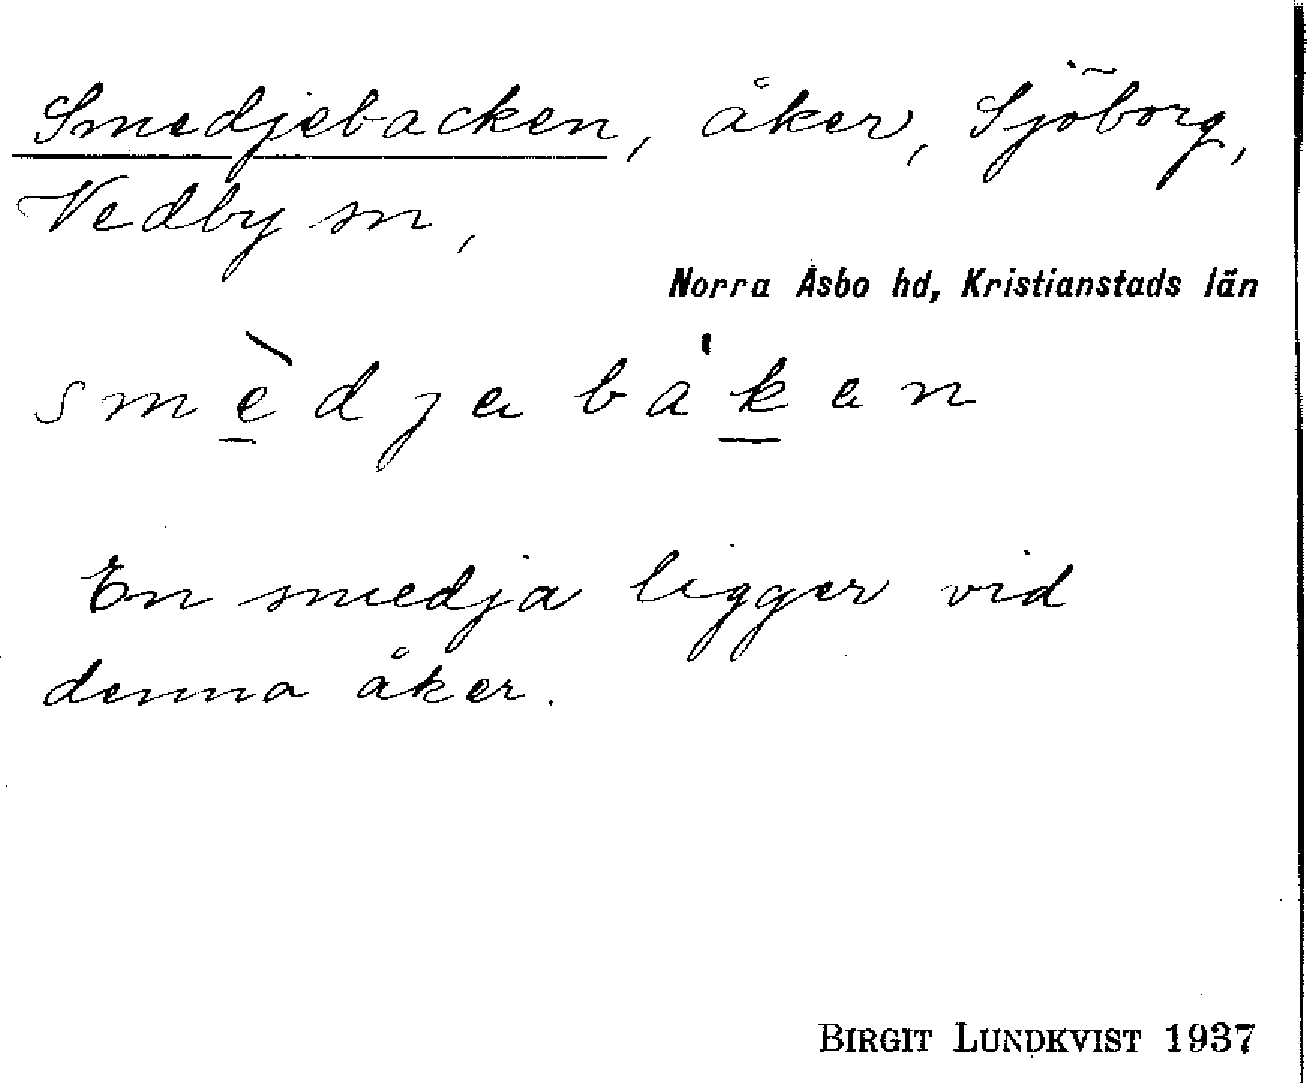 Smedjebacken, åker, Sjöborg,
Vedby sn,
Norra Åsbo hd, Kristianstads län
smèdjabàken
En smedja ligger vid
denna åker.
BIRGIT LUNDKVIST 1937